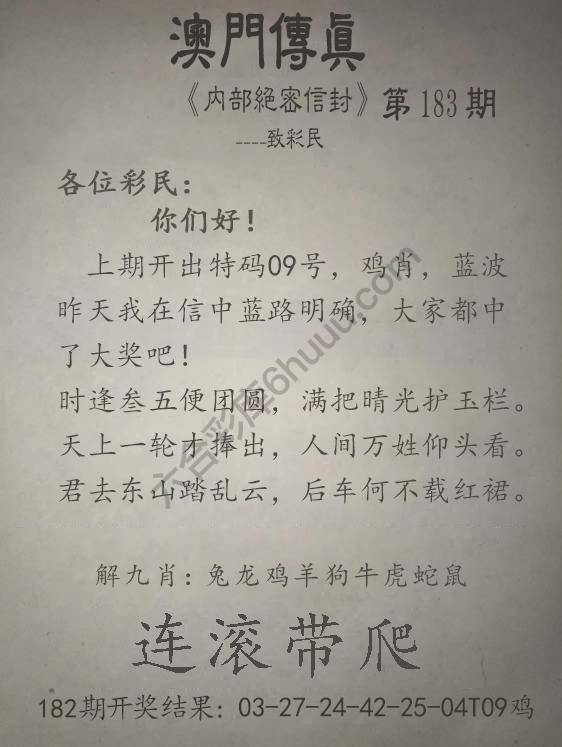 澳門傳眞
《内部絕密信封》第183期
----致彩民
各位彩民：
你们好！
上期开出特码09号，鸡肖，蓝波
昨天我在信中蓝路明确，大家都中
了大奖吧！
时逢叁五便团圆，满把晴光护玉栏。
天上一轮才捧出，人间万姓仰头看。
君去东山踏乱云，后车何不载红裙。
解九肖：兔龙鸡羊狗牛虎蛇鼠
连滚带爬
182期开奖结果：03-27-24-42-25-04T09鸡
六合彩库6huuu.com